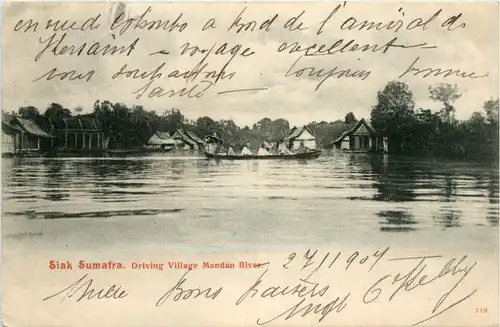 en route Colombo a bord de l'amiral de
Kersaint - voyage excellent -
vous souhaitons toujours bonne
santé -
Siak Sumatra. Driving Village Mandan River.
2/1 1904
Mille Bons Baisers
119